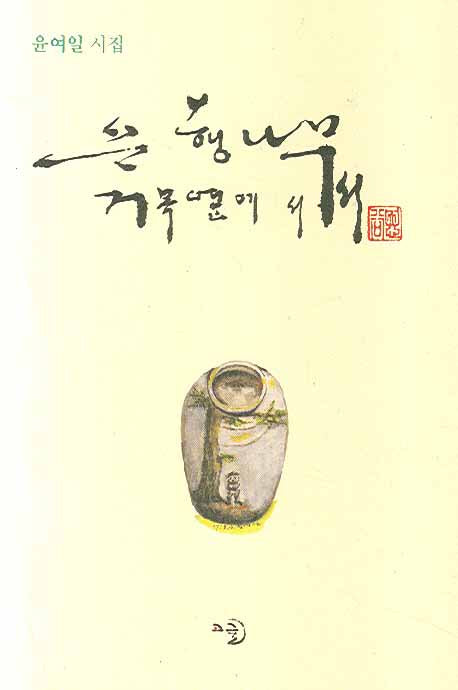 윤여일 시집
은행나무
거목 옆에 서서
고글